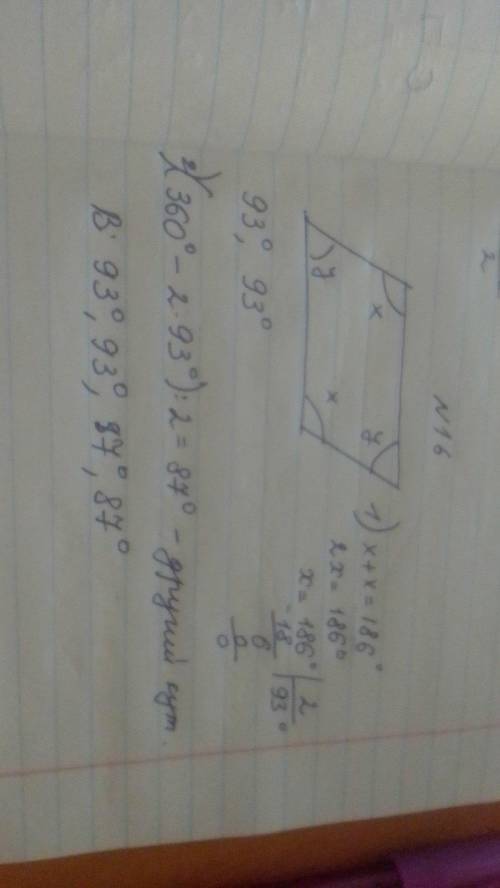 N16
x
y
x
y
1) x + x = 186°
2x = 186°
x = 186° | 2
-18 | 93°
6
0
0
93°, 93°
2) (360° - 2·93°):2 = 87° - другий кут.
В: 93°, 93°, 87°, 87°